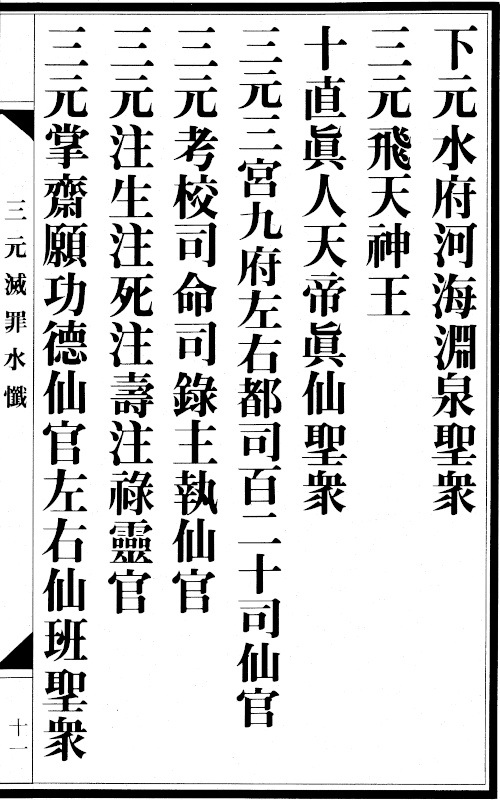 下元水府河海淵泉聖衆
三元飛天神王
十直眞人天帝眞仙聖衆
三元三宮九府左右都司百二十司仙官
三元考校司命司錄主執仙官
三元注生注死注壽注祿靈官
三元掌齋願功德仙官左右仙班聖衆
三元滅罪水懺
十一